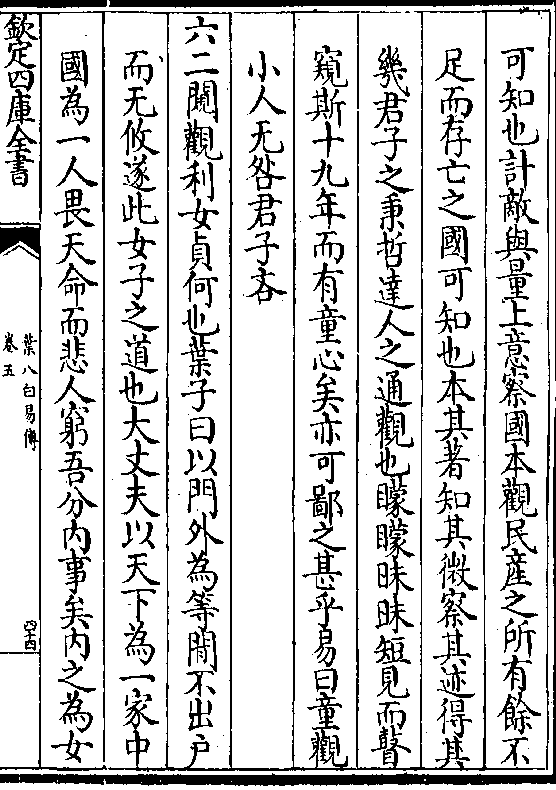 可知也計敵與量上意察國本觀民産之所有餘不
足而存亡之國可知也本其著知其微察其迹得其
幾君子之秉哲達人之通觀也矇矇昧昧短見而瞽
窺斯十九年而有童心矣亦可鄙之甚乎易曰童觀
小人无咎君子吝
六二闚觀利女貞何也葉子曰以門外為等閒不出户
而无攸遂此女子之道也大丈夫以天下為一家中
國為一人畏天命而悲人窮吾分内事矣内之為女
欽定四庫全書
葉八白易傳
卷五
四十四